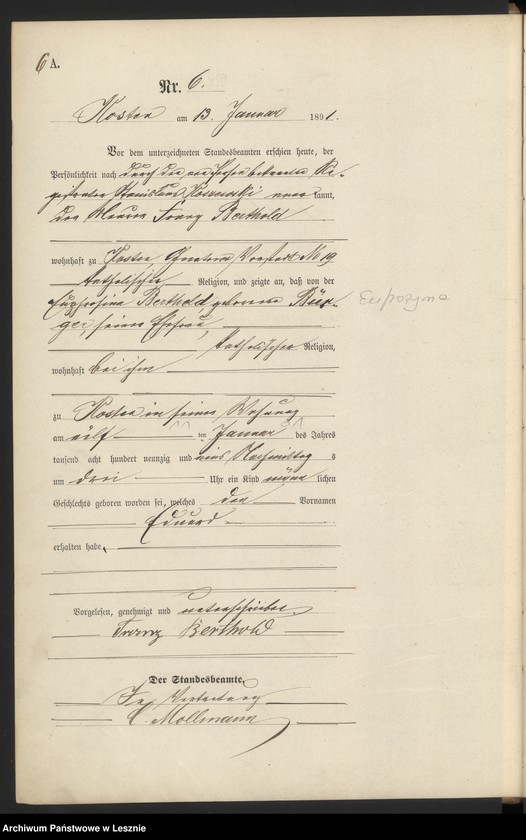 6 A.
Nr. 6.
Kosten am 13 Januar 1891.
Vor dem unterzeichneten Standesbeamten erschien heute, der
Persönlichkeit nach durch den bekannten Re-
gistrator Stanislaus kannt,
der Maurer Franz Berthold
wohnhaft zu Kosten Vorstadt No 19
katholischer Religion, und zeigte an, daß von der
Euphrosina Berthold, geborene
seiner Ehefrau,
katholischer Religion,
wohnhaft bei ihm
Eufrozyna
zu Kosten in seiner Wohnung
am eilf ten Januar des Jahres
tausend acht hundert neunzig und eins Nachmittags
um drei Uhr ein Kind männlichen
Geschlechts geboren worden sei, welches den Vornamen
Eduard
erhalten habe.
Vorgelesen, genehmigt und unterschrieben
Franz Berthold
Der Standesbeamte.
In Vertretung
C. Mollmann
Archiwum Państwowe w Lesznie